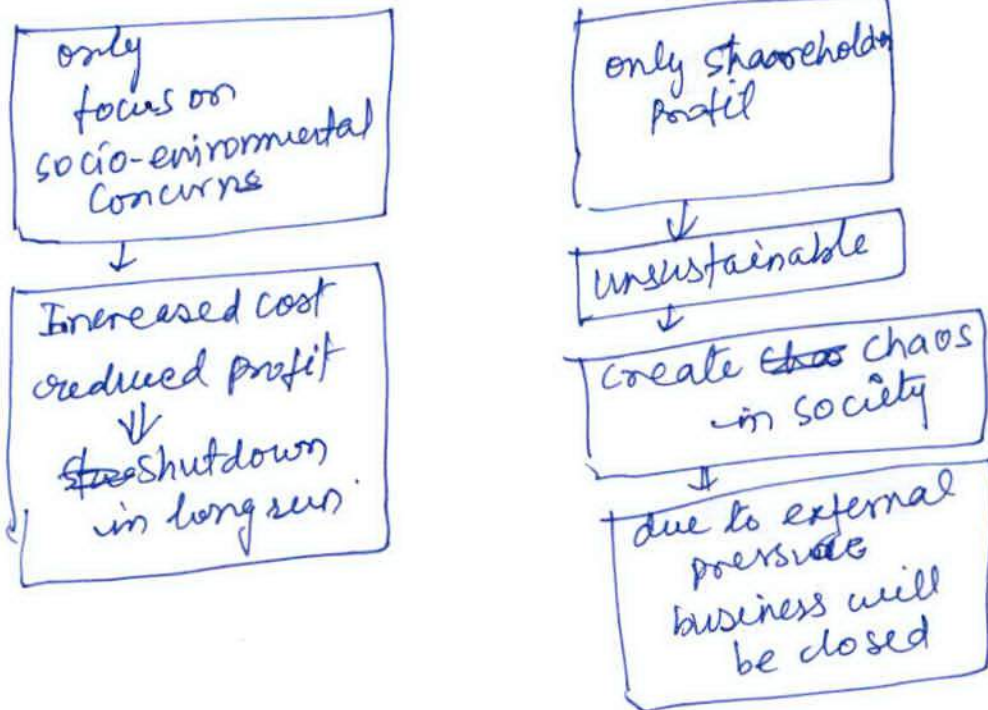 only
focus on
socio-enironmental
Concurns
Increased cost
reduced profit
shutdown
in long run
only shareholdr
Profit
unsustainable
create chaos
in society
due to external
pressure
business will
be closed